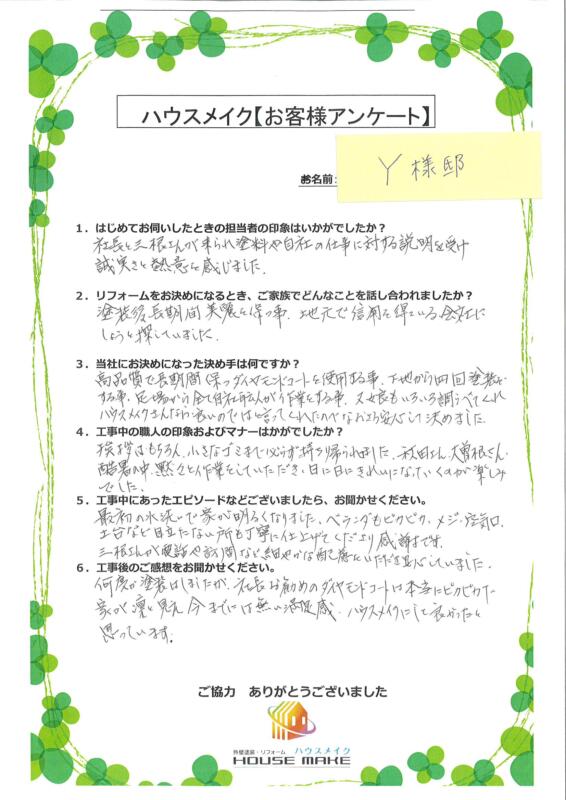 ハウスメイク【お客様アンケート】
お名前:
Y様邸
1．はじめてお伺いしたときの担当者の印象はいかがでしたか？
社長と三根さんが来られ塗料や自社の仕事に対する説明を受け
誠実さと熱意を感じました。
2．リフォームをお決めになるとき、ご家族でどんなことを話し合われましたか？
塗装後長期間美麗を保つ事、地元で信用を得ている会社に
しようと探していました。
3．当社にお決めになった決め手は何ですか？
高品質で長期間保つダイヤモンドコートを使用する事、下地から四回塗装を
する事、足場から全て自社職人さんが作業をする事、又女良もいろいろ調べてくれ
ハウスメイクさんなら良いのではと言ってくれたのでなおさら安心して決めました。
4．工事中の職人の印象およびマナーはかがでしたか？
挨拶はもちろん、小さなゴミまで必らず持ち帰られました。秋田さん、大曽根さん、
酷暑の中、黙々と作業をしていただき、日に日にきれいになっていくのが楽しみ
でした。
5．工事中にあったエピソードなどございましたら、お聞かせください。
最初の水洗いで家が明るくなりました。ベランダもピカピカ、メジ、空気口、
土台など目立たない所も丁寧に仕上げてくださり感謝です。
三根さんが電話や訪問など細やかな配慮をいただき安心していました。
6．工事後のご感想をお聞かせください。
何度か塗装はしましたが、社長お勧めのダイヤモンドコートは本当にピカピカで
家が凛と見え今までには無い満足感、ハウスメイクにして良かったと
思っています。
ご協力　ありがとうございました
外壁塗装・リフォーム ハウスメイク
HOUSE MAKE